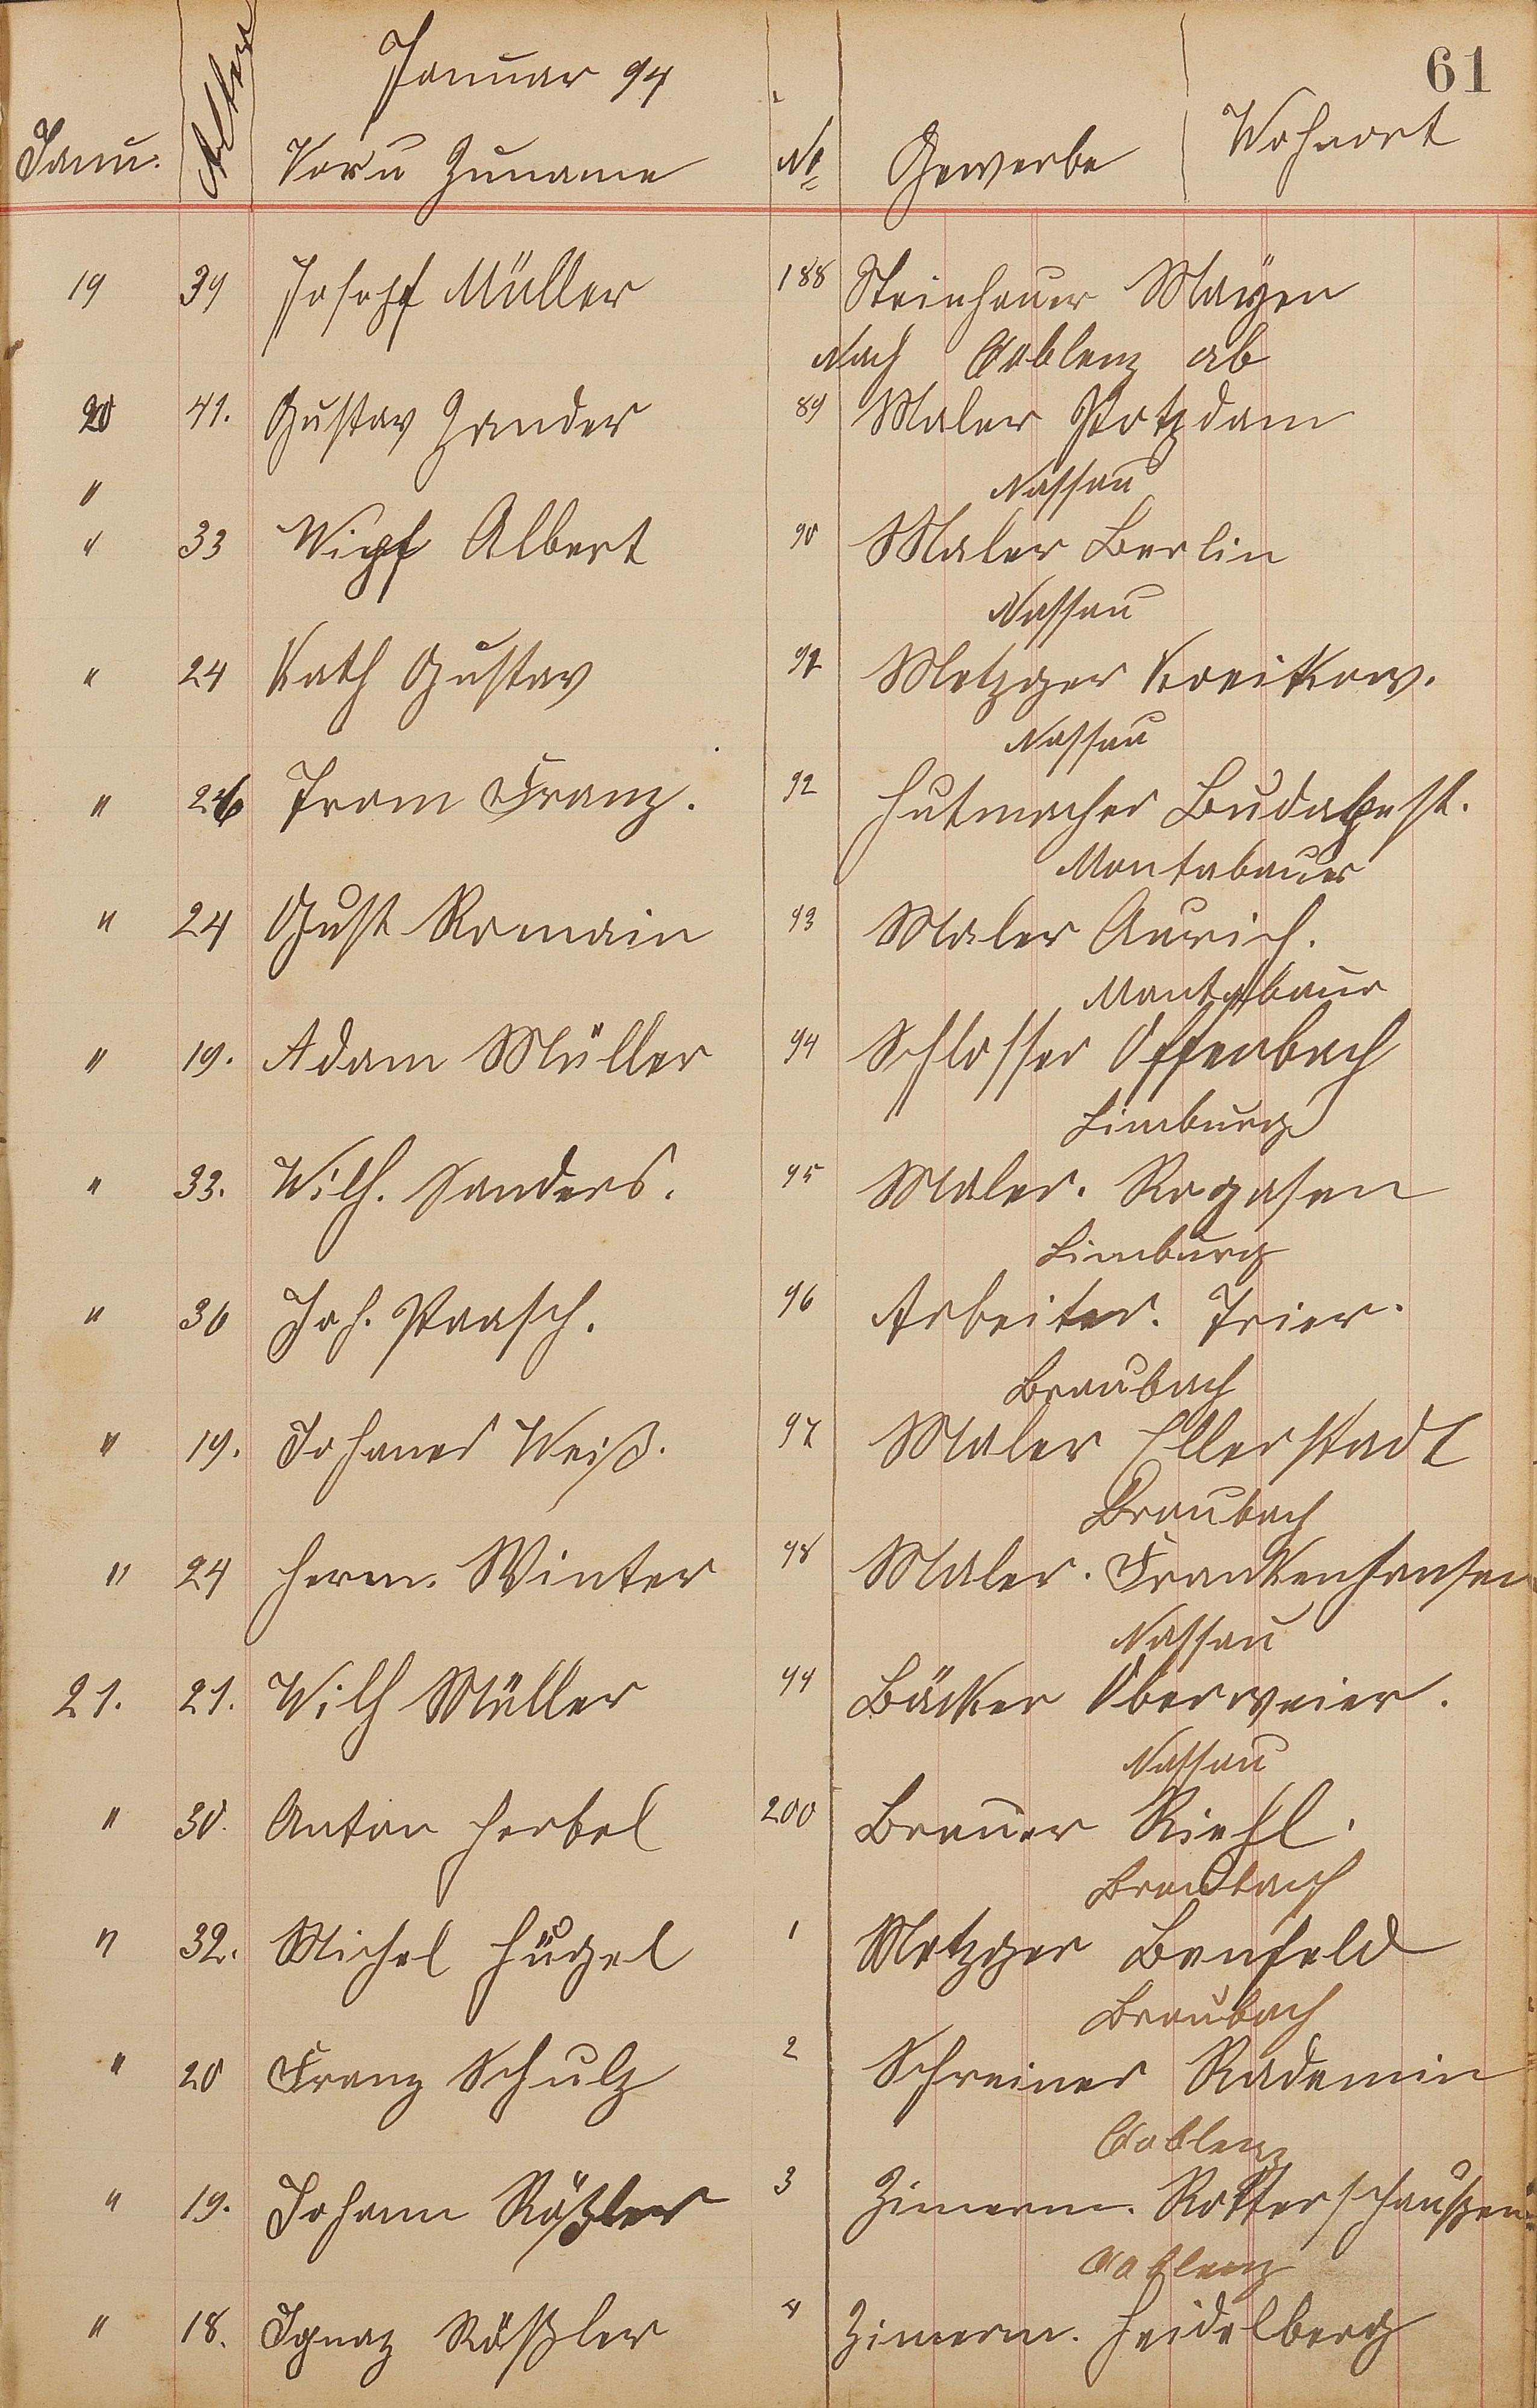 61
Januar 94
Janu. Alter Vor u Zuname No Gewerbe Wohnort
19 39 Joseph Müller 188 Steinhauer Mayen
Nach Coblenz ab
20 41. Gustav Zander 89 Maler Potzdam
" Nassau
" 33 Wipf Albert 90 Maler Berlin
Nassau
" 24 Kath Gustav 91 Metzger
Nassau
" 26 Prom Franz. 92 Hutmacher Budapest.
Montabauer
" 24 Gust Romain 93 Maler Aurich.
Montabaur
" 19. Adam Müller 94 Schlosser Offenbach
Limburg
" 33. Wilh. Sanders. 95 Maler. Rogasen
Limburg
" 36 Joh. Paasch. 96 Arbeiter. Trier.
Braubach
" 19. Johanes Weiß. 97 Maler Ellerstadt
Braubach
" 24 Herm. Winter 98 Maler. Frankenhausen
Nassau
21. 21. Wilh Müller 99 Bäcker Oberweier.
Nassau
" 30. Anton Herbel 200 Brauer Riehl.
Braubach
" 32. Michel Hügel 1 Metzger Benfeld
Braubach
" 20 Franz Schulz 2 Schreiner Rademin
Coblenz
" 19. Johann Rößler 3 Zimerm.
Coblenz
" 18. Ignaz Rößler 4 Zimerm. Heidelberg